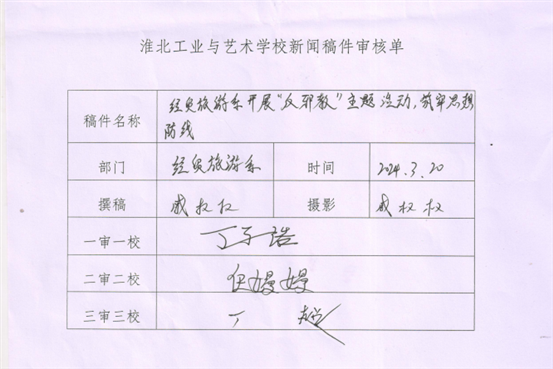 淮北工业与艺术学校新闻稿件审核单
稿件名称 经贸旅游系开展“反邪教”主题活动,筑牢思想
防线
部门 经贸旅游系 时间 2024.3.20
撰稿 摄影
一审一校 丁子浩
二审二校 嫚嫚
三审三校 丁